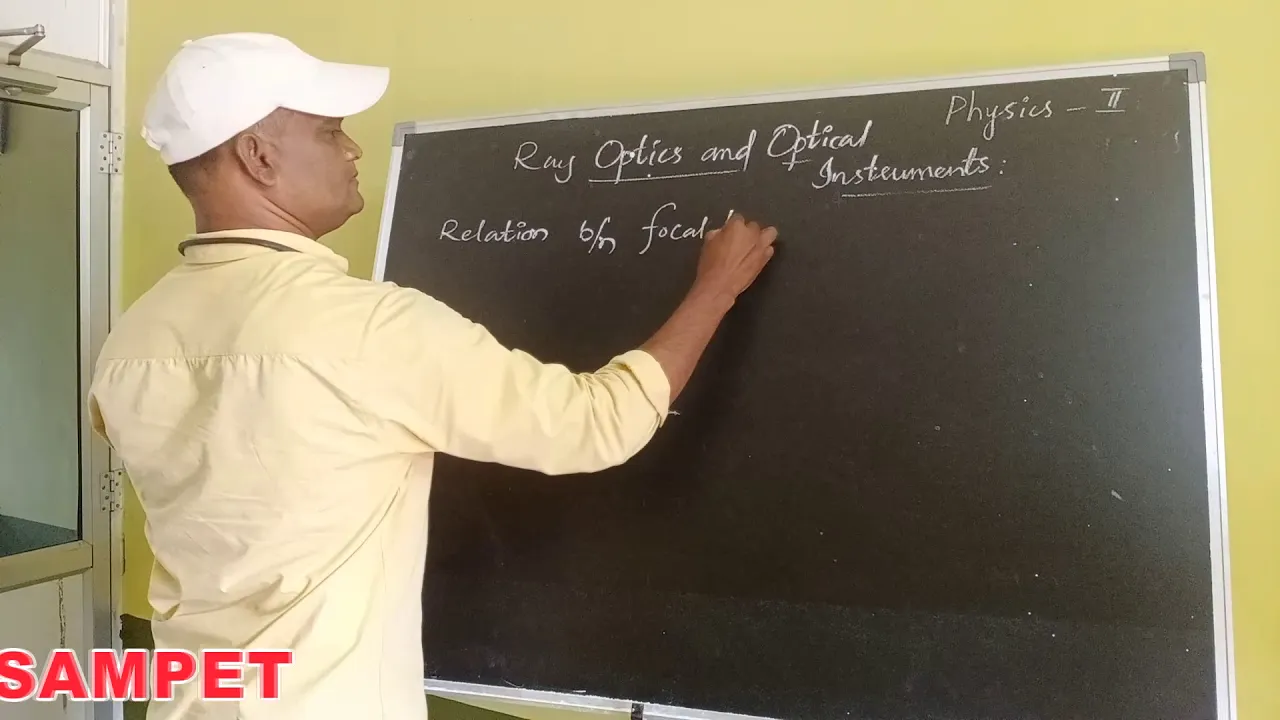 Physics - II
Ray Optics and Optical
Instruments:
Relation b/n focal
SAMPET